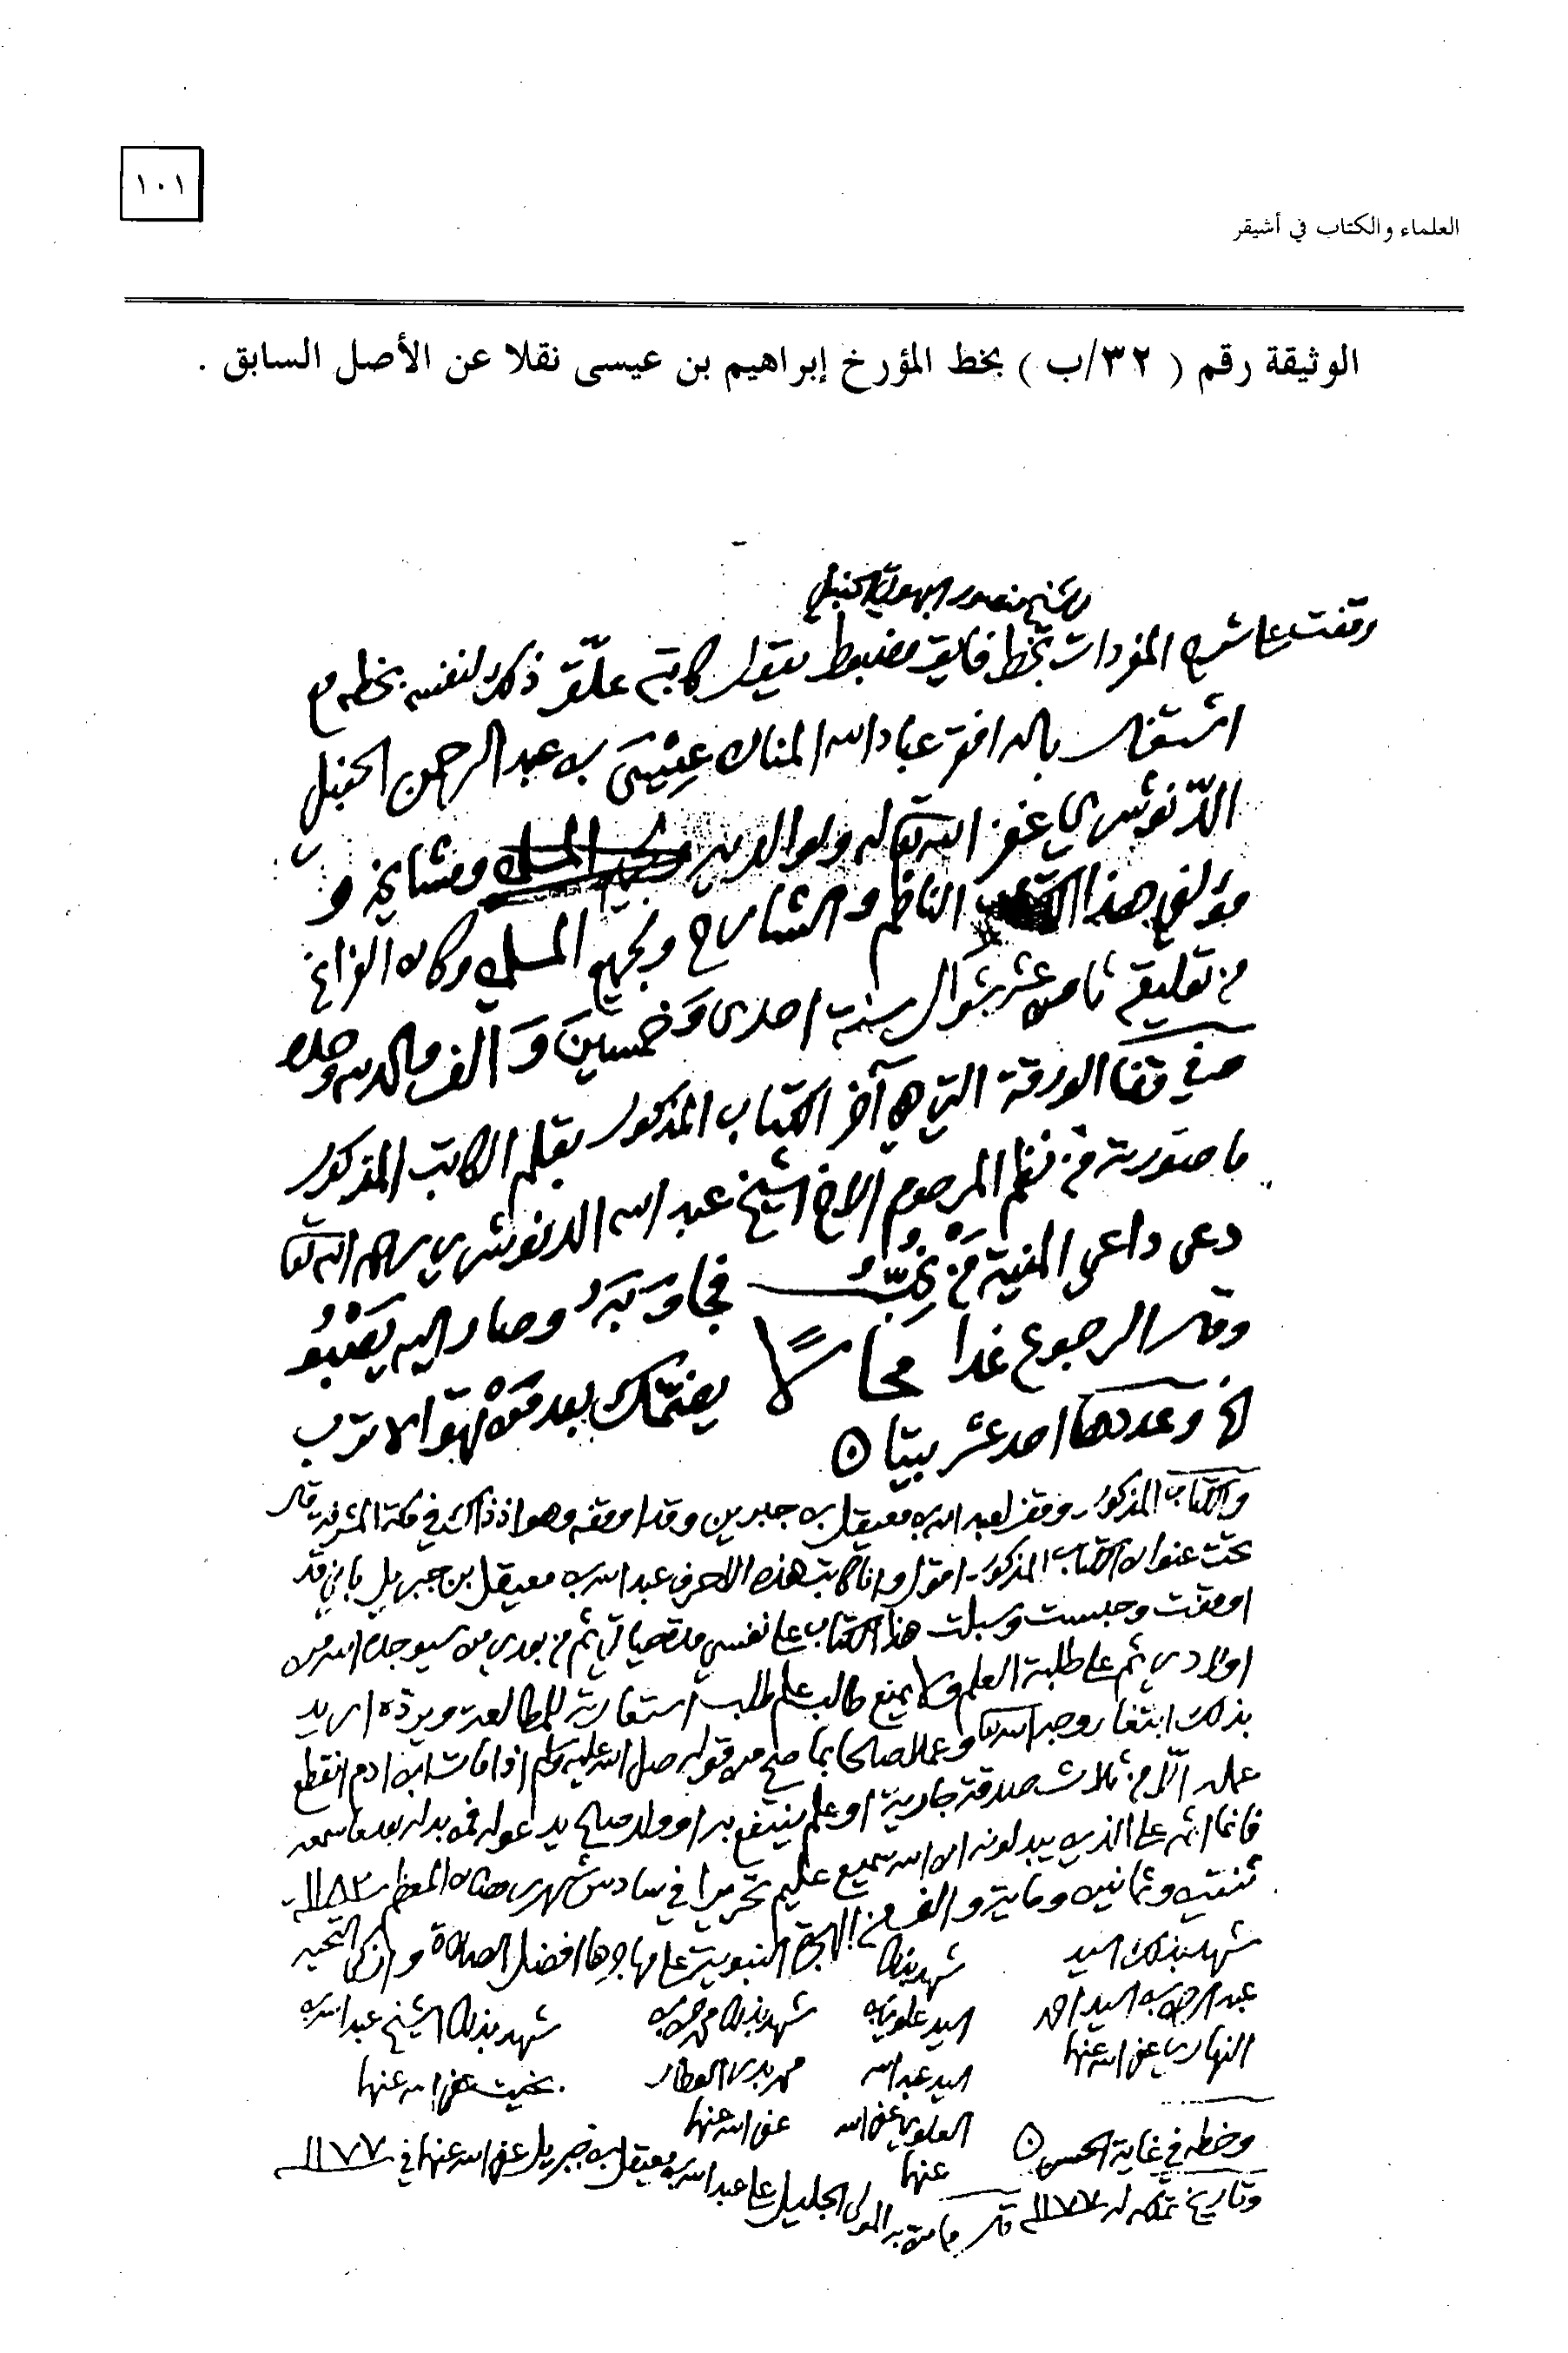 ١٠١
العلماء والكتاب في أشيقر
الوثيقة رقم ( ٣٢/ب ) بخط المؤرخ إبراهيم بن عيسى نقلا عن الأصل السابق .
للشيخ منصور البهوتي الحنبلي
وقفت على شرح المفردات بخط فايق مضبوط يقول كاتبه علّق ذلك لنفسه بخطه مع
اشتغال باله افقر عباد الله المنان عِيْسَى بن عبد الرحمن الحنبلي
الدّنوشري غفر الله تعالى له ولوالديه ومشايخه و
مؤلفي هذا الكتاب الناظم والشارح ولجميع المسلمين وكان الفراغ
من تعليقه ثامن عشر شوال سنة احدى وَخمسينَ وَالف والحمد لله وحده
وفي قفا الورقة التي هي آخر الكتاب المذكور بقلم الكاتب المذكور
ما صورته من نظم المرحوم الاخ الشيخ عبد الله الدنوشري رحمه الله تعالى
دعى داعي المنية مَنْ تُحِبُّ فجاوبَهُ وصار اليه يَصْبُو
وقد الرجوع غدا مَحَالًا يضمّك بعد مَوْتِهِ الا ترب
الخ وعددها احد عشر بيتا ٥
والكتاب المذكور وقف لعبد الله بن معيقل بن جبرين وقد اوقفه وهو اذ ذاك في مكة المشرفه قال
تحت عنوان الكتاب المذكور اقول وانا كاتب هذه الاحرف عبد الله بن معيقل بن جبريل باني قد
اوقفت وحبست وسبلت هذا الكتاب على نفسي مدة حياتي ثم من بعدي من سيوجده الله من
اولادي ثم على طلبة العلم ولا يمنع طالب علم طلب استعارته للمطالعة ويرده اريد
بذلك ابتغاء وجه الله تعالى وعملا صالحا بما صح من قوله صلى الله عليه وسلم اذا مات ابن ادم انقطع
عمله الّا من ثلاث صدقة جارية او علم ينتفع به او ولد صالح يدعو له فمن بدله بعدما سمعه
فانما اثمه على الذين يبدلونه ان الله سميع عليم تحريرا في سادس شهر رمضان المعظم سنة ١١٨٢
ثنتين وثمانين وماية والف من الهجرة النبوية على مهاجرها افضل الصلاة وازكى التحية
شهد بذلك السيد شهد بذلك شهد بذلك شهد بذلك الشيخ عبد الله بن
عبد الرحمن بن السيد احمد السيد علوي بن
النهاري عفى الله عنها السيد عبد الله محمد بدر العطار بخيت عفى الله عنها
العلوي عفى الله عفى الله عنها
وخطه في غاية الحسن ٥ عنها
وتاريخ تملكه له ١١٧٧ قال ما من به المولى الجليل على عبد الله بن معيقل بن جبريل عفى الله عنها في ١١٧٧